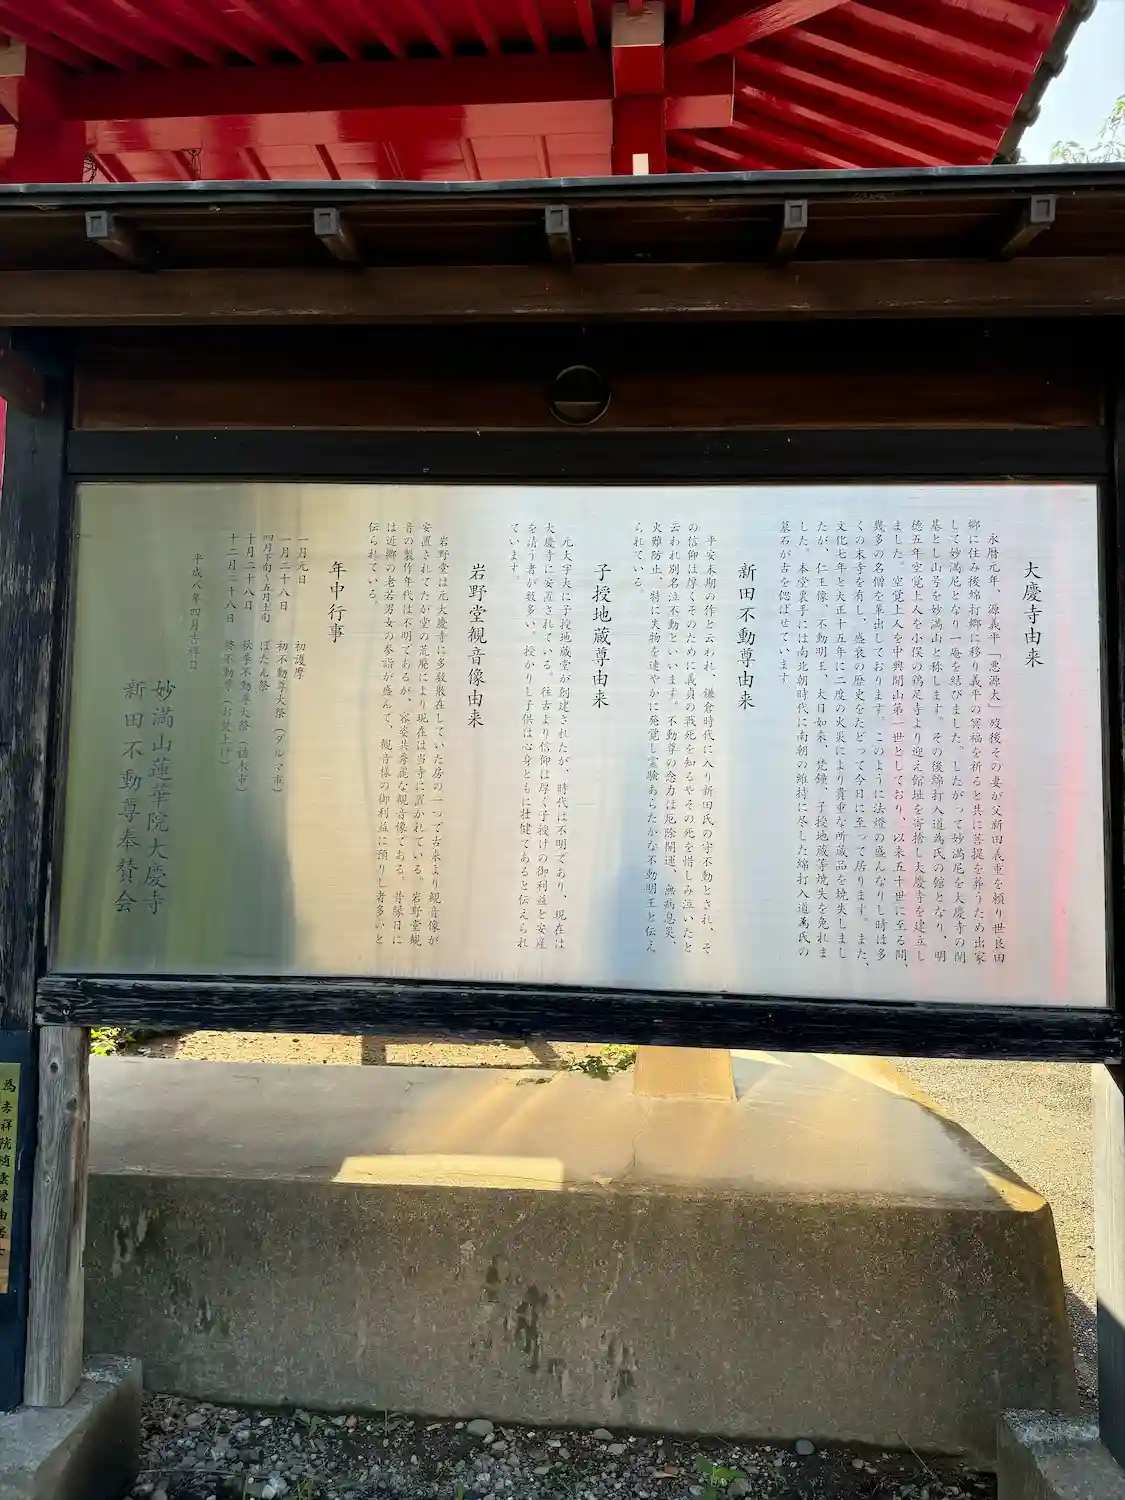 大慶寺由来
永暦元年、源義平「悪源太」歿後その妻が父新田義重を頼り世良田
郷に住み後綿打郷に移り義平の冥福を祈ると共に菩提を葬うため出家
して妙満尼となり一庵を結びました。したがって妙満尼を大慶寺の開
基とし山号を妙満山と称します。その後綿打入道為氏の館となり、明
徳五年空覚上人を小俣の鶏足寺より迎え館址を寄捨し大慶寺を建立し
ました。空覚上人を中興開山第一世としており、以来五十世に至る間、
幾多の名僧を輩出しております。このように法燈の盛んなりし時は多
くの末寺を有し、盛衰の歴史をたどって今日に至って居ります。また、
文化七年と大正十五年に二度の火災により貴重な所蔵品を焼失しまし
たが、仁王像、不動明王、大日如来、梵鐘、子授地蔵等焼失を免れま
した。本堂裏手には南北朝時代に南朝の維持に尽した綿打入道為氏の
墓石が古を偲ばせています。
新田不動尊由来
平安末期の作と云われ、鎌倉時代に入り新田氏の守不動とされ、そ
の信仰は厚くそのために義貞の戦死を知るやその死を惜しみ泣いたと
云われ別名泣不動といいます。不動尊の念力は厄除開運、無病息災、
火難防止、特に失物を速やかに発覚し霊験あらたかな不動明王と伝え
られている。
子授地蔵尊由来
元大字天に子授地蔵堂が創建されたが、時代は不明であり、現在は
大慶寺に安置されている。往古より信仰は厚く子授けの御利益と安産
を請う者が数多い。授かりし子供は心身ともに壮健であると伝えられ
ています。
岩野堂観音像由来
岩野堂は元大慶寺に多数散在していた房の一つで古来より観音像が
安置されてたが堂の荒廃により現在は当寺に置かれている。岩野堂観
音の製作年代は不明であるが、容姿共秀麗な観音像である。昔縁日に
は近郷の老若男女の参詣が盛んで、観音様の御利益に預りし者多いと
伝られている。
年中行事
一月元日 初護摩
一月二十八日 初不動尊大祭(ダルマ市)
四月下旬〜五月上旬 ぼたん祭
十月二十八日 秋季不動尊大祭(植木市)
十二月二十八日 終不動尊(お焚上げ)
平成八年四月吉祥日
妙満山蓮華院大慶寺
新田不動尊奉賛会